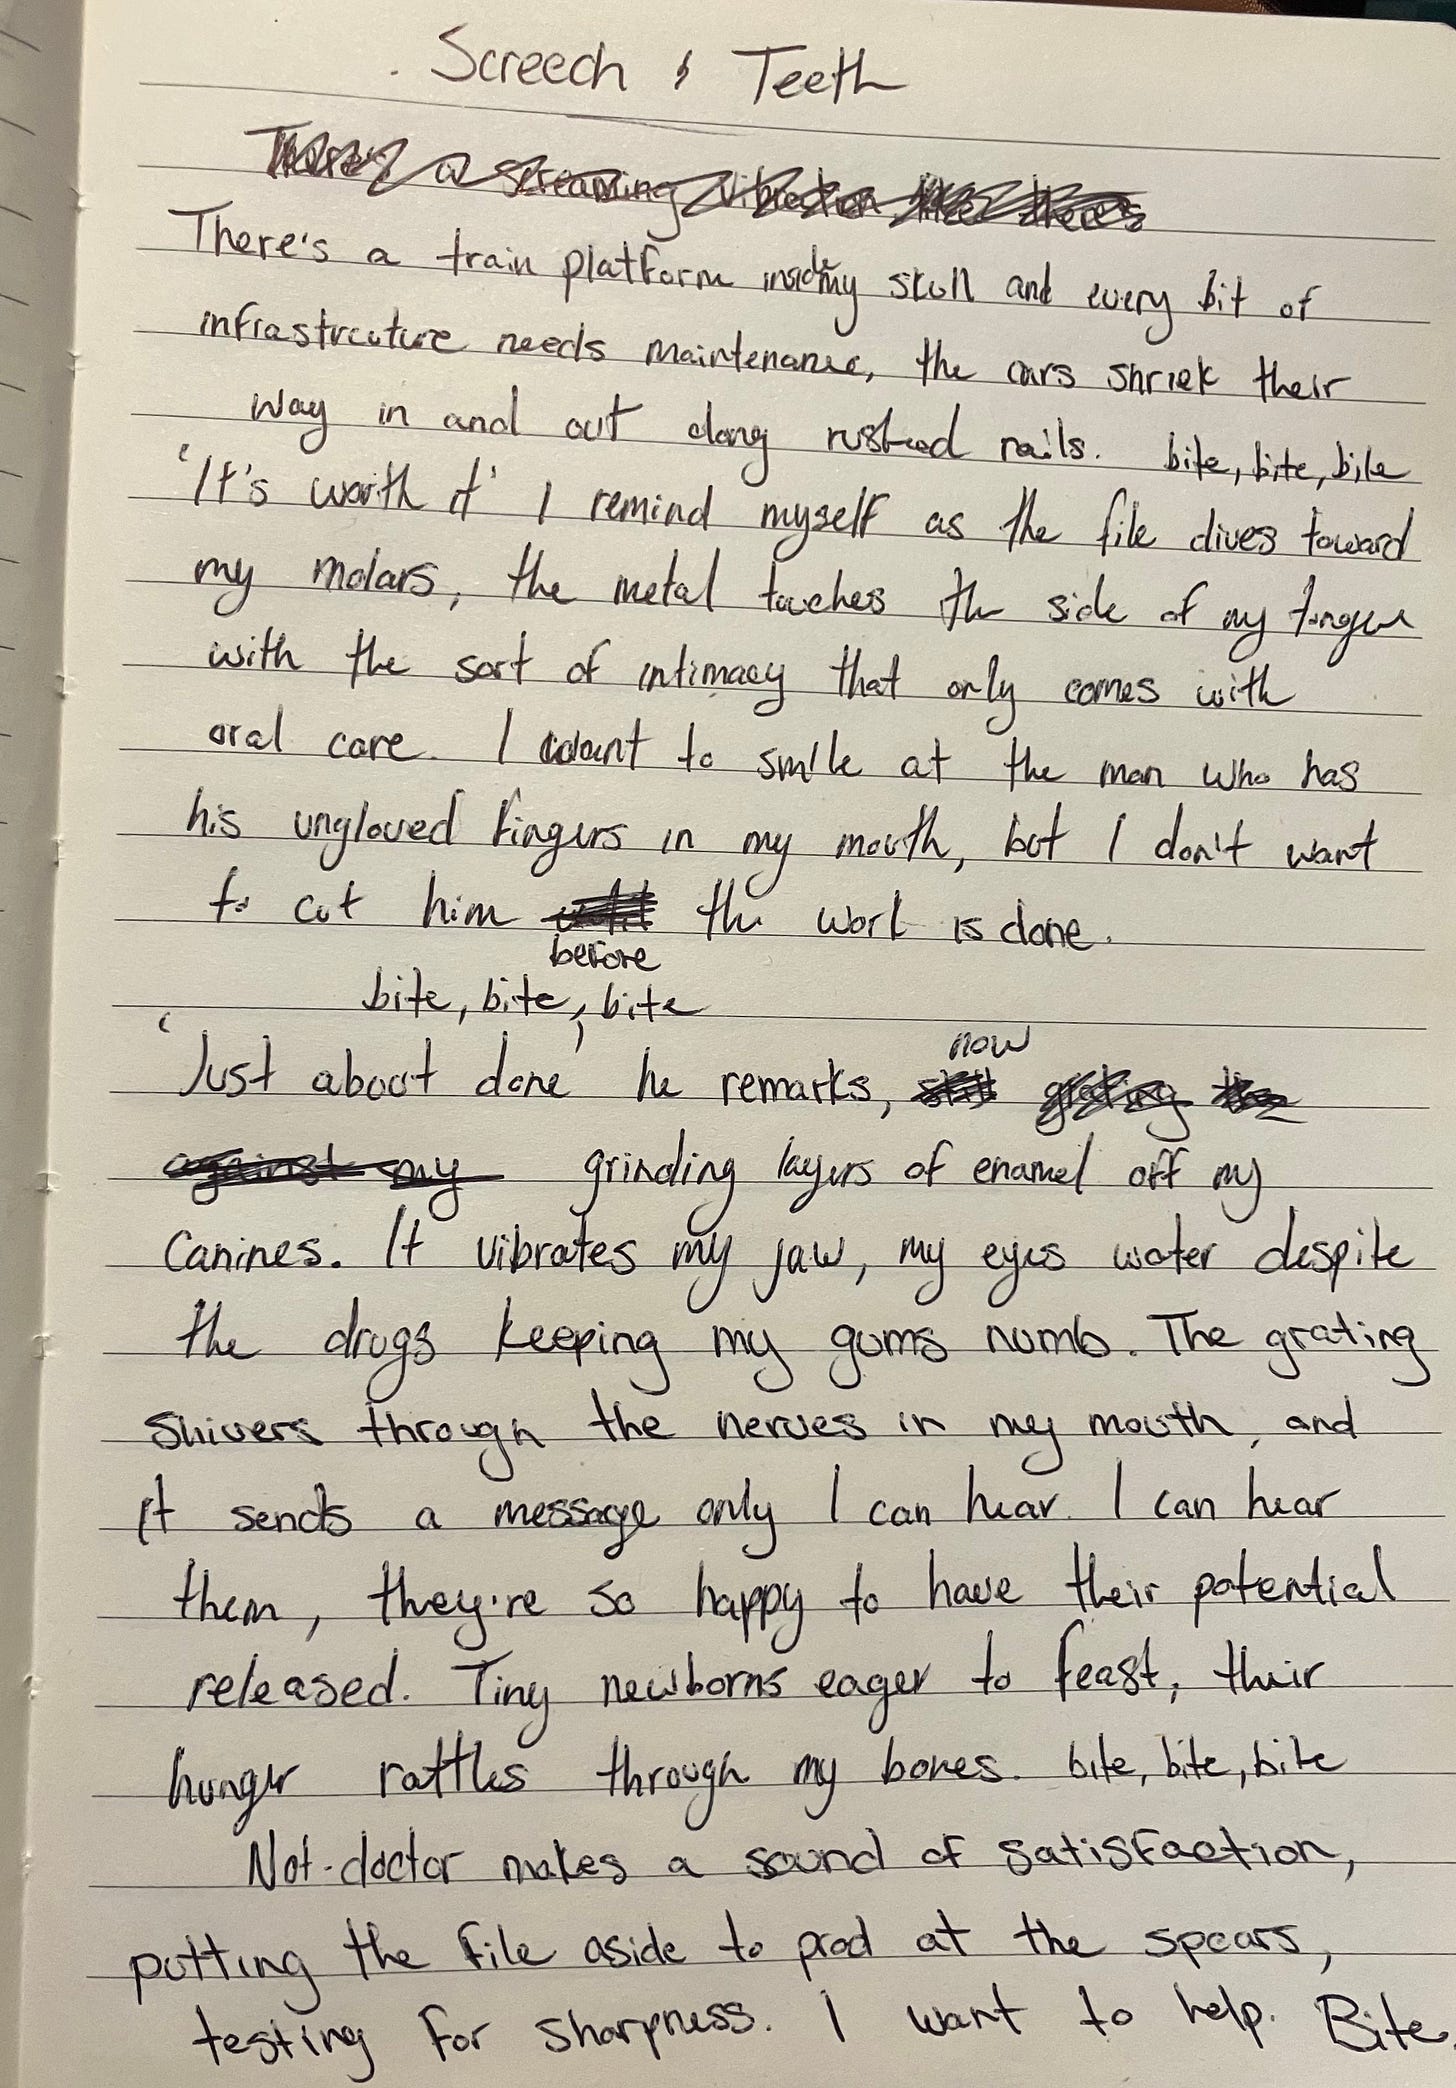 Screech & Teeth
a screaming vibration
There's a train platform inside my skull and every bit of
infrastructure needs maintenance, the cars shriek their
way in and out along rusted rails. bite, bite, bite
'It's worth it' I remind myself as the file dives toward
my molars, the metal touches the side of my tongue
with the sort of intimacy that only comes with
oral care. I want to smile at the man who has
his ungloved fingers in my mouth, but I don't want
to cut him before the work is done.
bite, bite, bite
'Just about done' he remarks, now
against my grinding layers of enamel off my
canines. It vibrates my jaw, my eyes water despite
the drugs keeping my gums numb. The grating
shivers through the nerves in my mouth, and
it sends a message only I can hear. I can hear
them, they're so happy to have their potential
released. Tiny newborns eager to feast, their
hunger rattles through my bones. bite, bite, bite
Not-doctor makes a sound of satisfaction,
putting the file aside to prod at the spears,
testing for sharpness. I want to help. Bite.